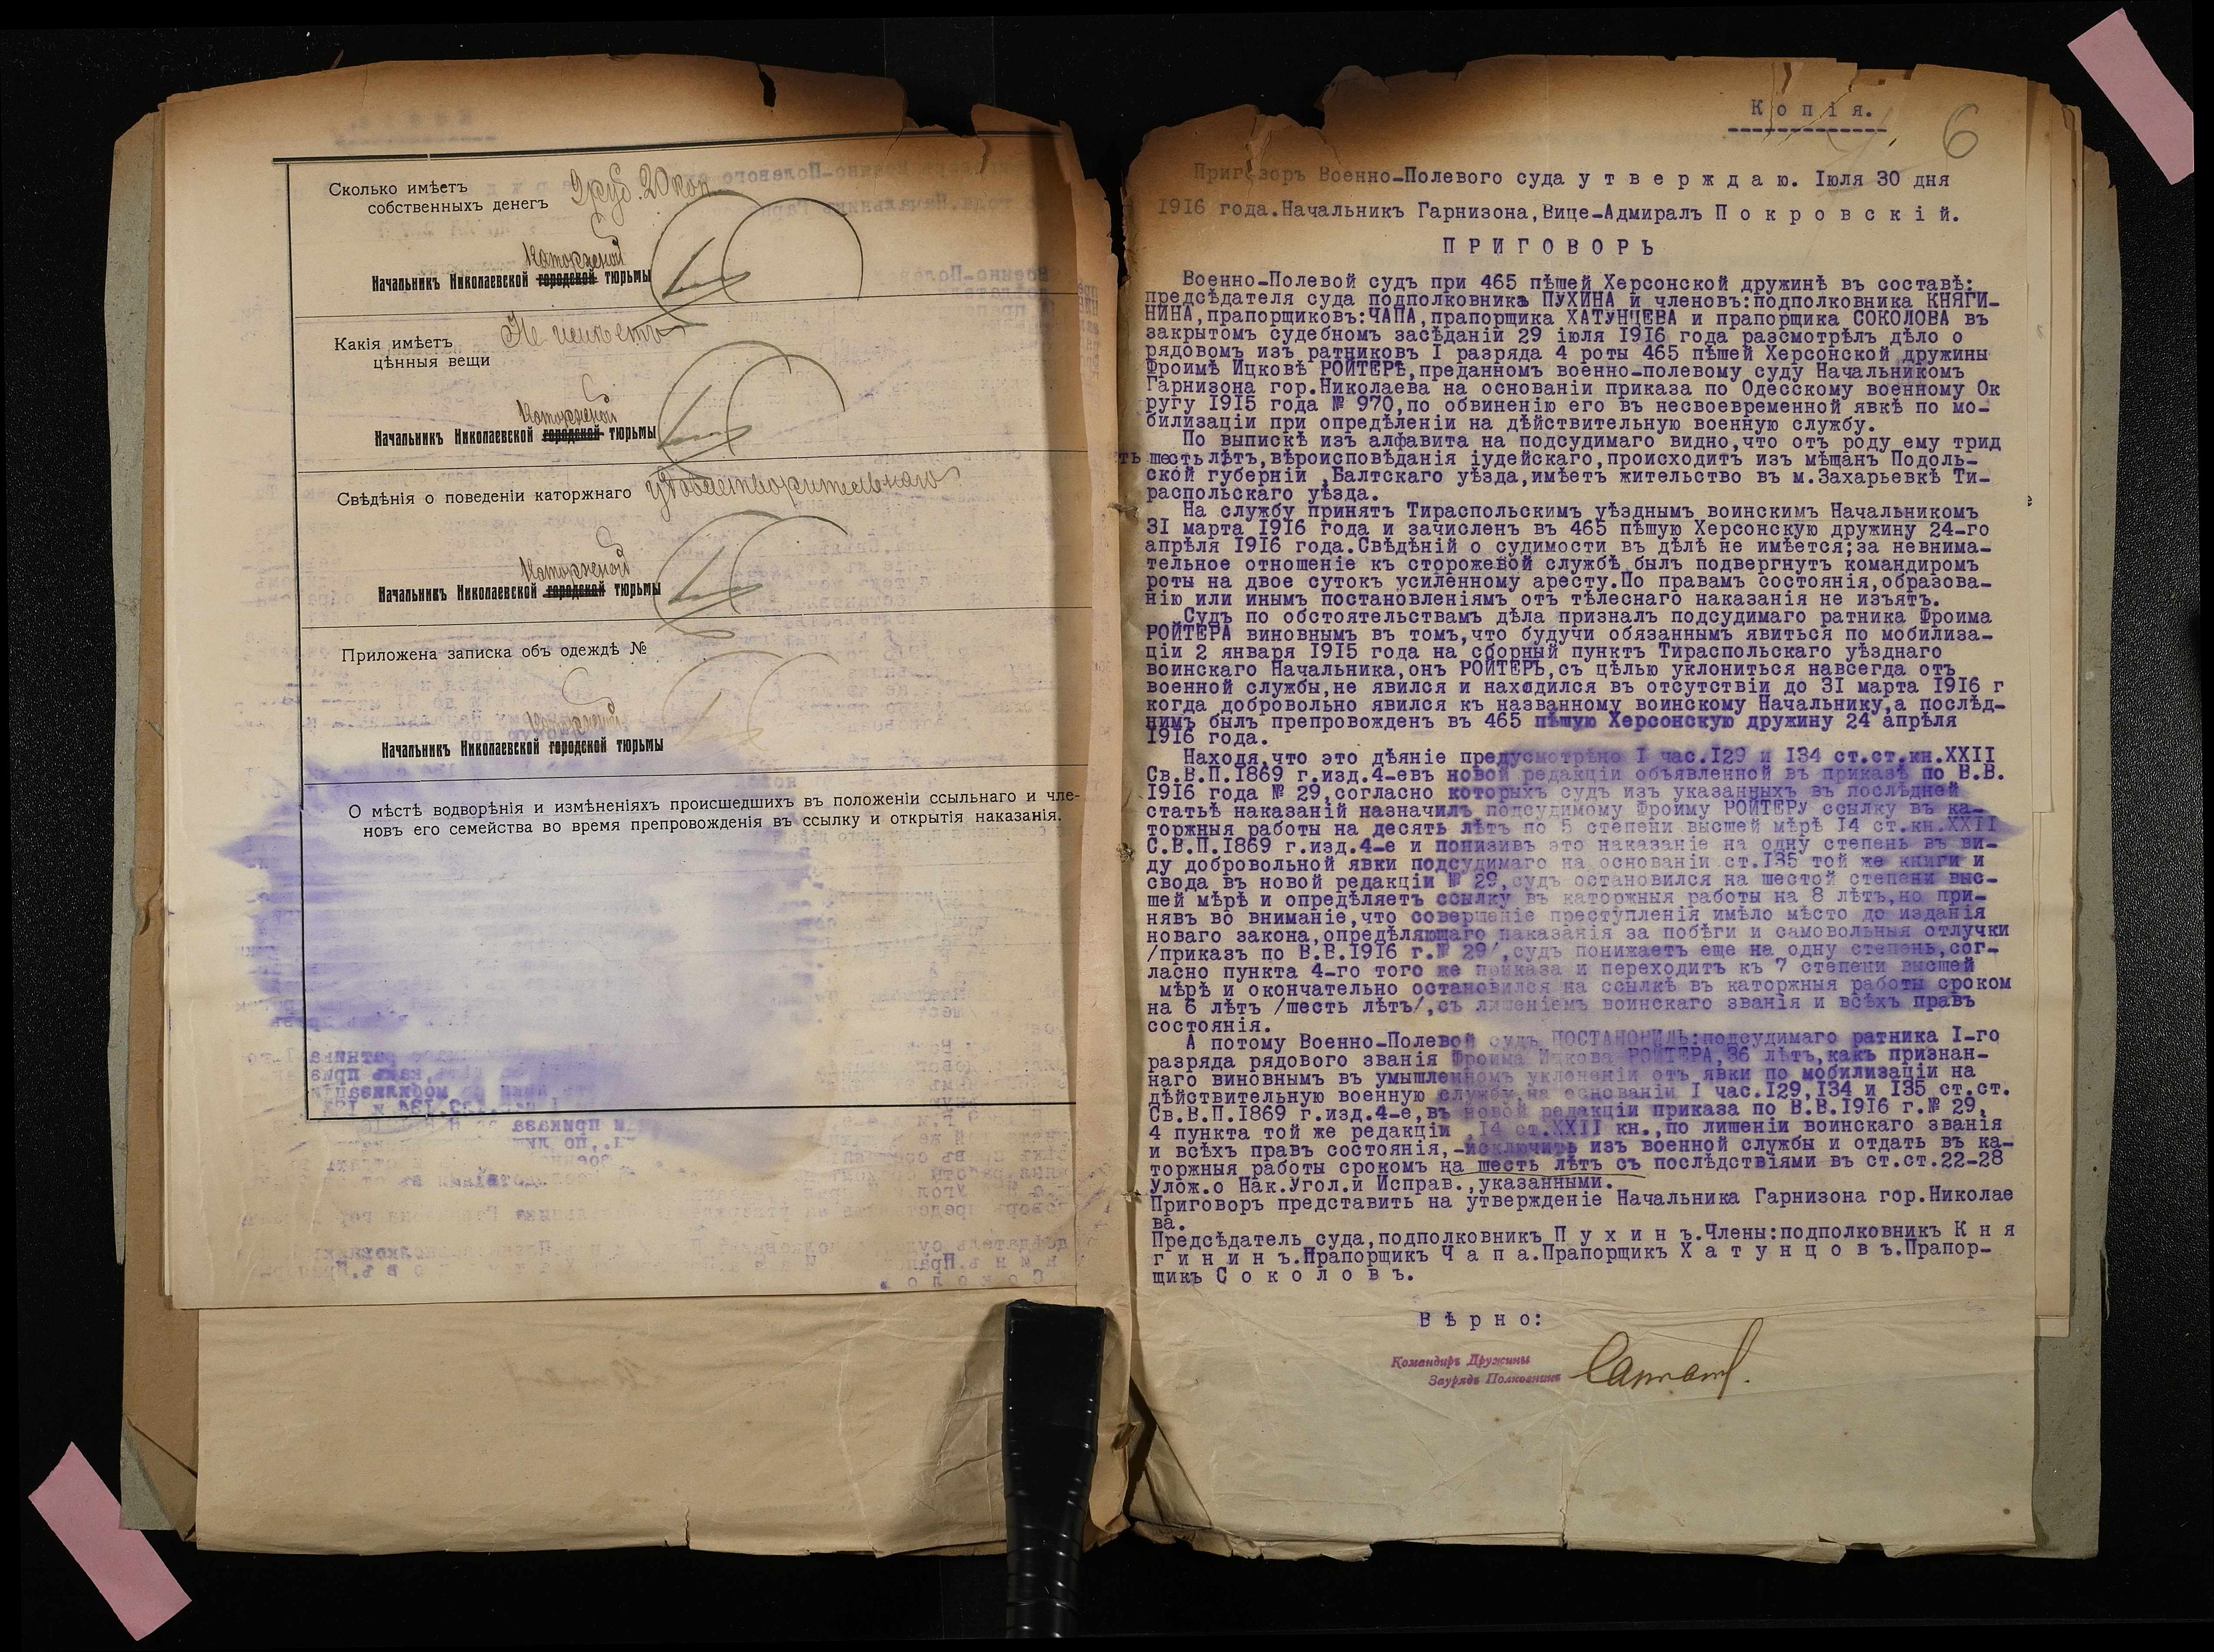 Сколько имѣетъ
собственныхъ денегъ 9 руб. 20 коп.
Каторжной
Начальникъ Николаевской городской тюрьмы
Какія имѣетъ
цѣнныя вещи Не имѣетъ
Каторжной
Начальникъ Николаевской городской тюрьмы
Свѣдѣнія о поведеніи каторжнаго удовлетворительнаго
Каторжной
Начальникъ Николаевской городской тюрьмы
Приложена записка объ одеждѣ №
Каторжной
Начальникъ Николаевской городской тюрьмы
О мѣстѣ водворѣнія и измѣненіяхъ происшедшихъ въ положеніи ссыльнаго и чле-
новъ его семейства во время препровожденія въ ссылку и открытія наказанія.
Копія.
6
Приговоръ Военно-Полевого суда утверждаю. Іюля 30 дня
1916 года.Начальникъ Гарнизона,Вице-Адмиралъ Покровскій.
ПРИГОВОРЪ
Военно-Полевой судъ при 465 пѣшей Херсонской дружинѣ въ составѣ:
предсѣдателя суда подполковника ПУХИНА и членовъ:подполковника КНЯГИ-
НИНА,прапорщиковъ:ЧАПА,прапорщика ХАТУНЦЕВА и прапорщика СОКОЛОВА въ
закрытомъ судебномъ засѣданіи 29 іюля 1916 года разсмотрѣлъ дѣло о
рядовомъ изъ ратниковъ I разряда 4 роты 465 пѣшей Херсонской дружины
Фроимѣ Ицковѣ РОЙТЕРѢ,преданномъ военно-полевому суду Начальникомъ
Гарнизона гор.Николаева на основаніи приказа по Одесскому военному Ок
ругу 1915 года № 970,по обвиненію его въ несвоевременной явкѣ по мо-
билизаціи при опредѣленіи на дѣйствительную военную службу.
По выпискѣ изъ алфавита на подсудимаго видно,что отъ роду ему трид
ть шесть лѣтъ,вѣроисповѣданія іудейскаго,происходитъ изъ мѣщанъ Подоль-
ской губерніи ,Балтскаго уѣзда,имѣетъ жительство въ м.Захарьевкѣ Ти-
распольскаго уѣзда.
На службу принятъ Тираспольскимъ уѣзднымъ воинскимъ Начальникомъ
31 марта 1916 года и зачисленъ въ 465 пѣшую Херсонскую дружину 24-го
апрѣля 1916 года.Свѣдѣній о судимости въ дѣлѣ не имѣется;за невнима-
тельное отношеніе къ сторожевой службѣ былъ подвергнутъ командиромъ
роты на двое сутокъ усиленному аресту.По правамъ состоянія,образова-
нію или инымъ постановленіямъ отъ тѣлеснаго наказанія не изъятъ.
Судъ по обстоятельствамъ дѣла призналъ подсудимаго ратника Фроима
РОЙТЕРА виновнымъ въ томъ,что будучи обязаннымъ явиться по мобилиза-
ціи 2 января 1915 года на сборный пунктъ Тираспольскаго уѣзднаго
воинскаго Начальника,онъ РОЙТЕРЪ,съ цѣлью уклониться навсегда отъ
военной службы,не явился и находился въ отсутствіи до 31 марта 1916 г
когда добровольно явился къ названному воинскому Начальнику,а послѣд-
нимъ былъ препровожденъ въ 465 пѣшую Херсонскую дружину 24 апрѣля
1916 года.
Находя,что это дѣяніе предусмотрѣно I час.129 и 134 ст.ст.кн.XXII
Св.В.П.1869 г.изд.4-евъ новой редакціи объявленной въ приказѣ по В.В.
1916 года № 29,согласно которыхъ судъ изъ указанныхъ въ послѣдней
статьѣ наказаній назначилъ подсудимому Фроиму РОЙТЕРУ ссылку въ ка-
торжныя работы на десять лѣтъ по 5 степени высшей мѣрѣ 14 ст.кн.XXII
С.В.П.1869 г.изд.4-е и понизивъ это наказаніе на одну степень въ ви-
ду добровольной явки подсудимаго на основаніи ст.135 той же книги и
свода въ новой редакціи № 29,судъ остановился на шестой степени выс-
шей мѣрѣ и опредѣляетъ ссылку въ каторжныя работы на 8 лѣтъ,но при-
нявъ во вниманіе,что совершеніе преступленія имѣло мѣсто до изданія
новаго закона,опредѣляющаго наказанія за побѣги и самовольныя отлучки
/приказъ по В.В.1916 г.№ 29/,судъ понижаетъ еще на одну степень,сог-
ласно пункта 4-го того же приказа и переходитъ къ 7 степени высшей
мѣрѣ и окончательно остановился на ссылкѣ въ каторжныя работы срокомъ
на 6 лѣтъ /шесть лѣтъ/,съ лишеніемъ воинскаго званія и всѣхъ правъ
состоянія.
А потому Военно-Полевой судъ ПОСТАНОВИЛЪ:подсудимаго ратника I-го
разряда рядового званія Фроима Ицкова РОЙТЕРА,36 лѣтъ,какъ признан-
наго виновнымъ въ умышленномъ уклоненіи отъ явки по мобилизаціи на
дѣйствительную военную службу,на основаніи I час.129,134 и 135 ст.ст.
Св.В.П.1869 г.изд.4-е,въ новой редакціи приказа по В.В.1916 г.№ 29,
4 пункта той же редакціи ,14 ст.XXII кн.,по лишеніи воинскаго званія
и всѣхъ правъ состоянія,-исключить изъ военной службы и отдать въ ка-
торжныя работы срокомъ на шесть лѣтъ съ послѣдствіями въ ст.ст.22-28
Улож.о Нак.Угол.и Исправ.,указанными.
Приговоръ представить на утвержденіе Начальника Гарнизона гор.Николае
ва.
Предсѣдатель суда,подполковникъ Пухинъ.Члены:подполковникъ Кня
гининъ.Прапорщикъ Чапа.Прапорщикъ Хатунцовъ.Прапор-
щикъ Соколовъ.
Вѣрно:
Командиръ Дружины
Заурядъ Полковникъ